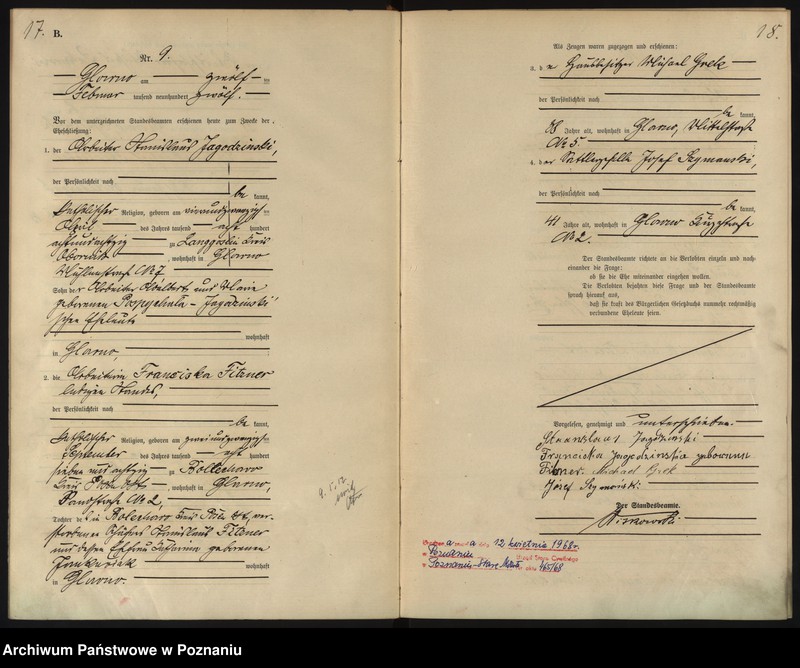 17.
B.
Nr. 9.
Glowno am zwölf ten
Februar tausend neunhundert zwölf.
Vor dem unterzeichneten Standesbeamten erschienen heute zum Zwecke der
Eheschließung:
1. der Arbeiter Stanislaus Jagodzinski,
der Persönlichkeit nach
be kannt,
katholischer Religion, geboren am vierundzwanzigsten
April des Jahres tausend acht hundert
achtundachtzig zu Langgoslin Kreis
Obornik, wohnhaft in Glowno
Mühlenstraße Nr. 7
Sohn der Arbeiter Adalbert und Marie
geborenen Jagodzinski
schen Eheleute
wohnhaft
in Glowno,
2. die Arbeiterin Franziska Fitzner
ledigen Standes,
der Persönlichkeit nach
be kannt,
katholischer Religion, geboren am zweiundzwanzigsten
September des Jahres tausend acht hundert
siebenundachtzig zu Bolechowo
Kreis Posen Ost, wohnhaft in Glowno,
Sandstraße Nr. 2,
Tochter des in Bolechowo Kreis Posen Ost, ver-
storbenen Stanislaus Fitzner
und dessen Ehefrau geborenen
wohnhaft
in Glowno.
18.
Als Zeugen waren zugezogen und erschienen:
3. der Hausbesitzer Michael Grek
der Persönlichkeit nach
be kannt,
Jahre alt, wohnhaft in Glowno, Mittelstraße
Nr. 5.
4. der Sattlergeselle Josef Szymanski,
der Persönlichkeit nach
be kannt,
41 Jahre alt, wohnhaft in Glowno
Nr. 2.
Der Standesbeamte richtete an die Verlobten einzeln und nach-
einander die Frage:
ob sie die Ehe miteinander eingehen wollen.
Die Verlobten bejahten diese Frage und der Standesbeamte
sprach hierauf aus,
daß sie kraft des Bürgerlichen Gesetzbuchs nunmehr rechtmäßig
verbundene Eheleute seien.
Vorgelesen, genehmigt und unterschrieben.
Stanislaus Jagodzinski
Franciska Jagodzinska geborenen
Fitzner. Michael Grek
Josef Szymański.
Der Standesbeamte.
12 kwietnia 1968 r.
Poznaniu
Urząd Stanu Cywilnego
Poznaniu-Stare Miasto 465/68
Archiwum Państwowe w Poznaniu